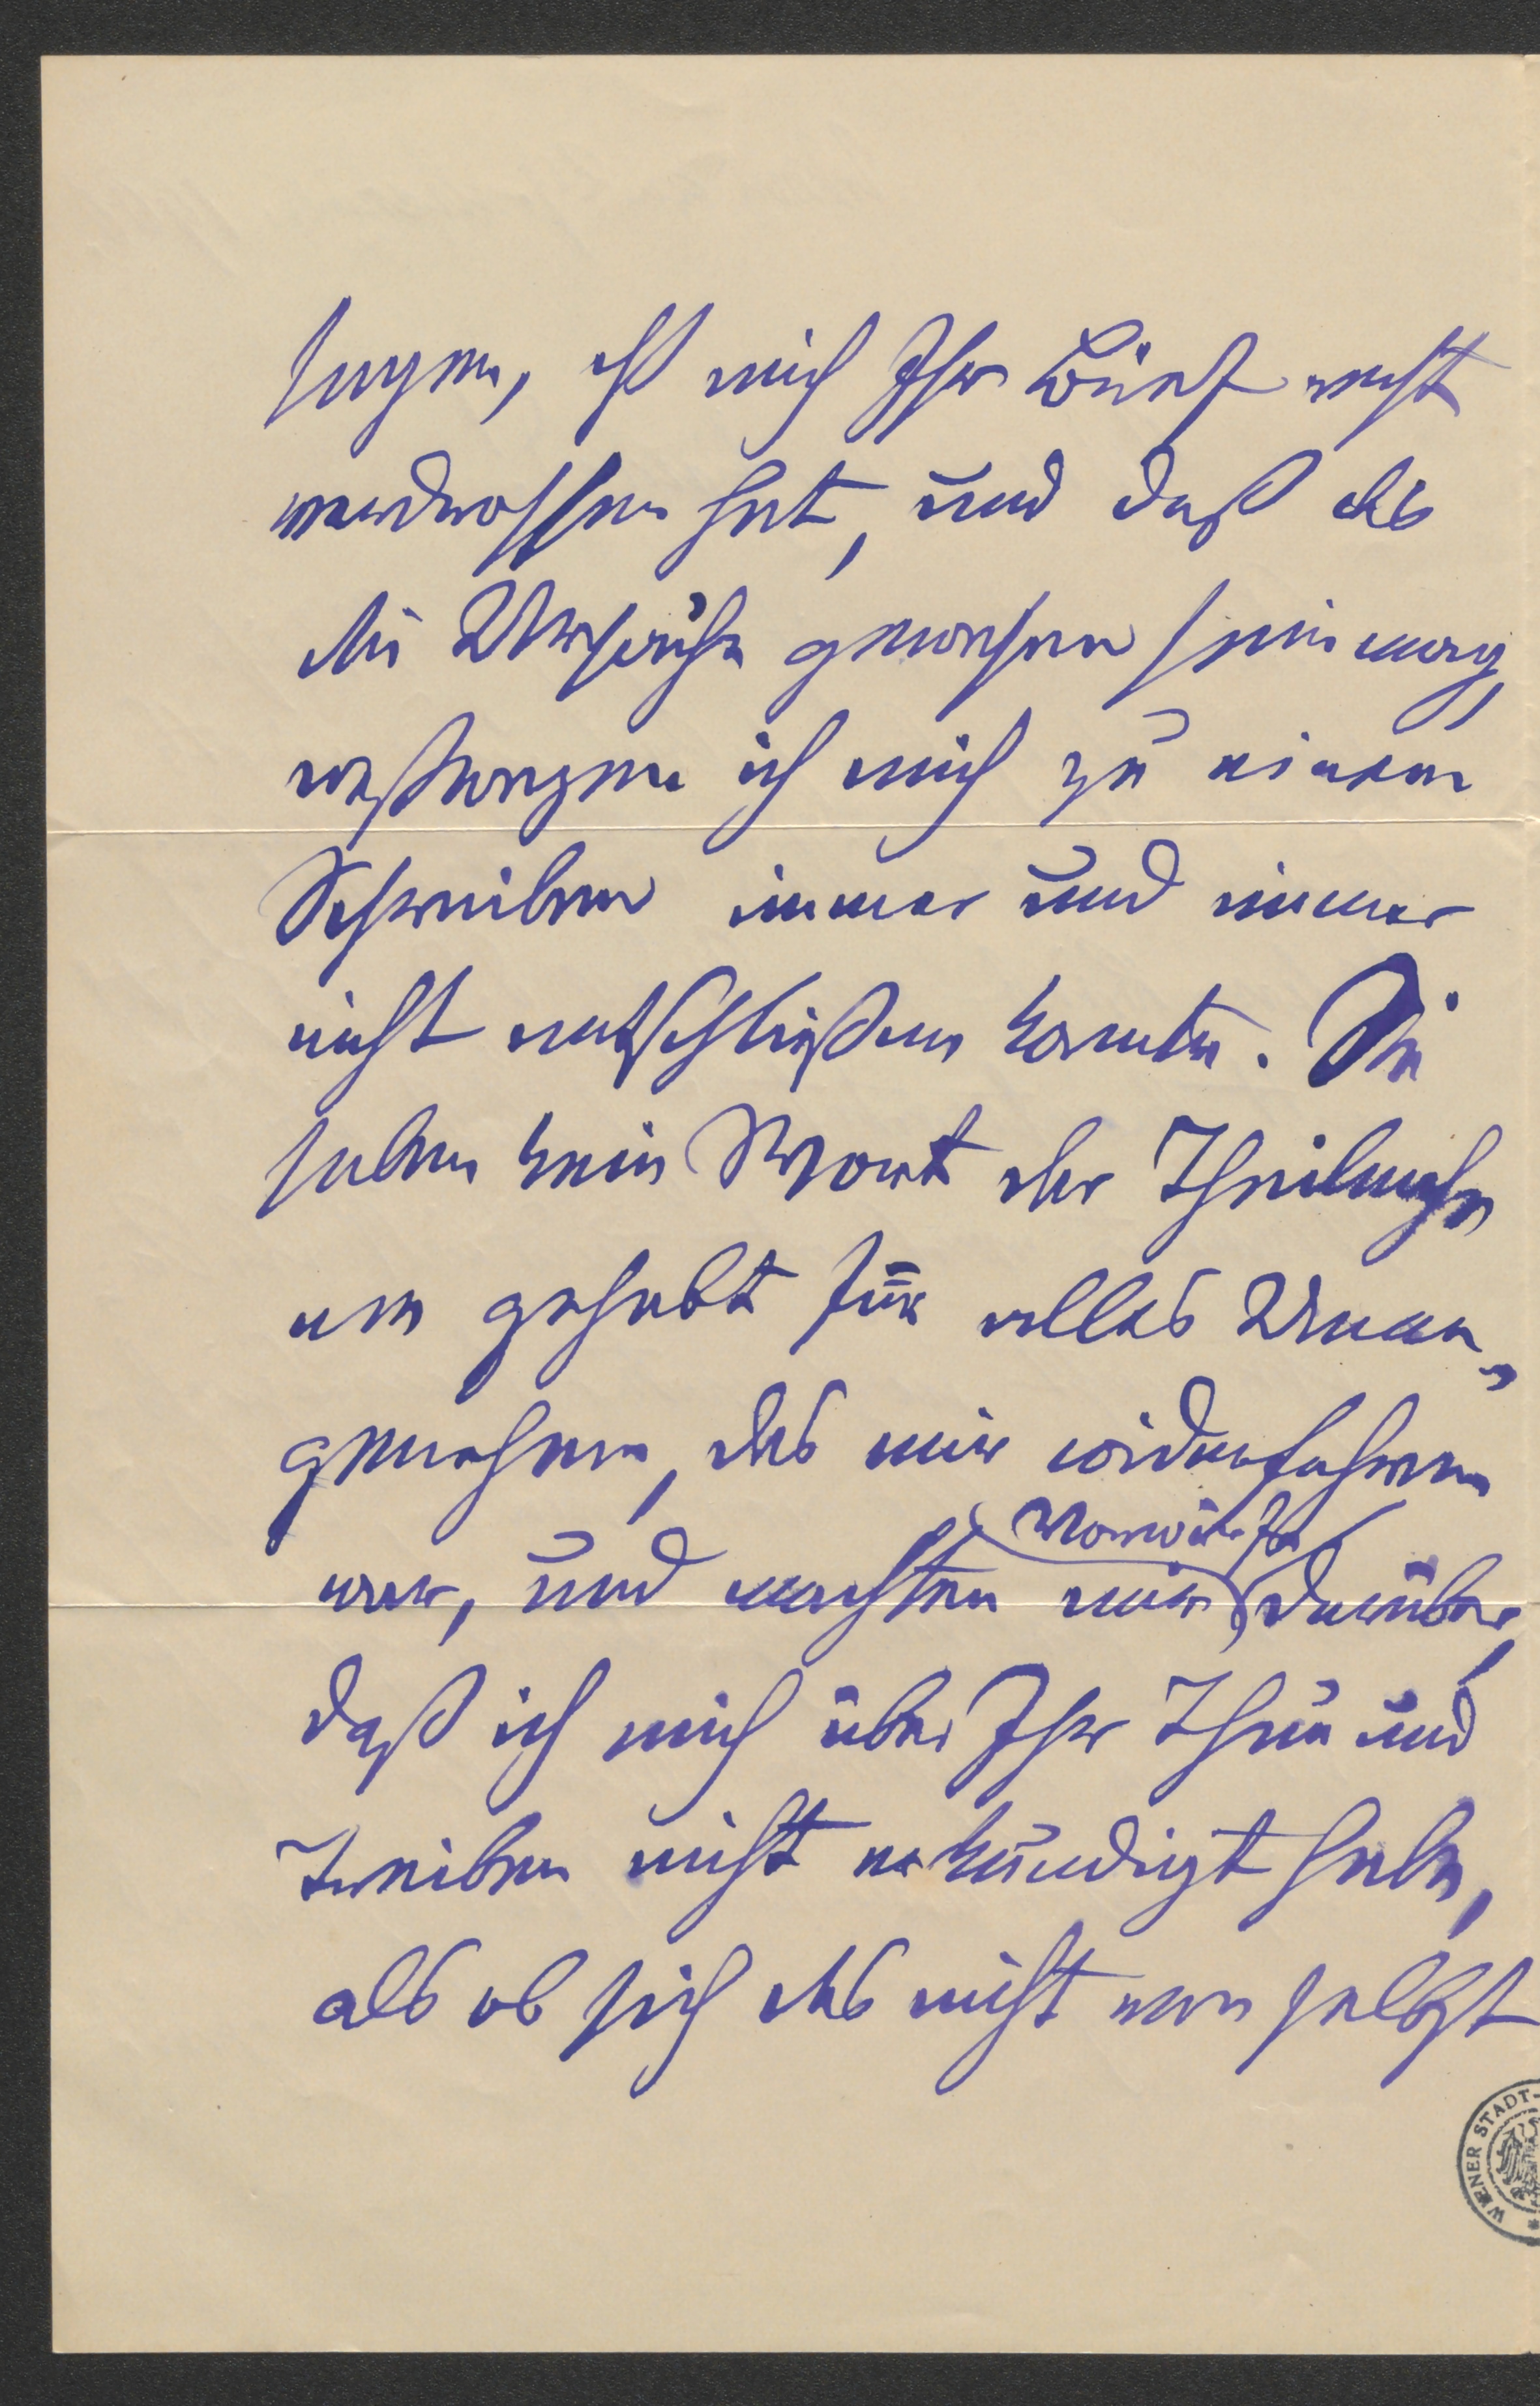 sagen, daß mich Ihr Brief recht
verdrossen hat, und daß das
die Ursache gewesen sein mag,
weßwegen ich mich zu einem
Schreiben immer und immer
nicht entschließen konnte. Sie
haben kein Wort der Theilnahme
gehabt für alles Unan-
genehme, das mir widerfahren
war, und machten mir Vorwürfe darüber,
daß ich mich über Ihr Thun und
Treiben nicht erkundigt habe,
als ob sich das nicht von selbst
WIENER STADT-